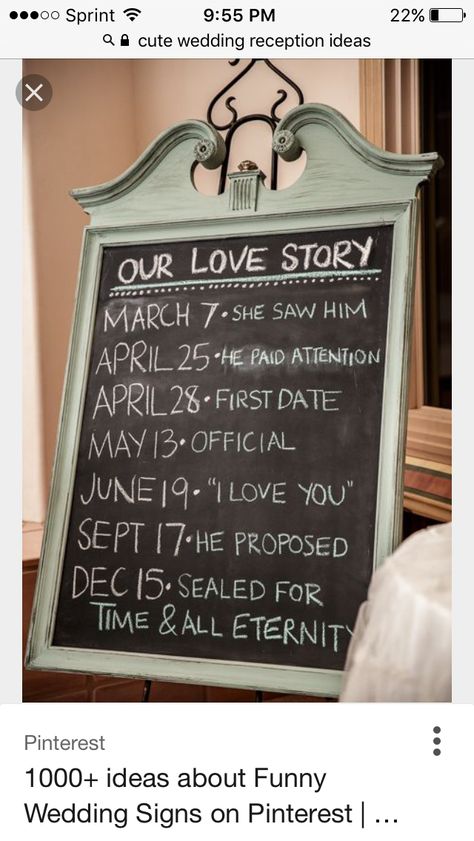 Sprint 9:55 PM 22%
cute wedding reception ideas
OUR LOVE STORY
MARCH 7 • SHE SAW HIM
APRIL 25 • HE PAID ATTENTION
APRIL 28 • FIRST DATE
MAY 13 • OFFICIAL
JUNE 19 • "I LOVE YOU"
SEPT 17 • HE PROPOSED
DEC 15 • SEALED FOR
TIME & ALL ETERNITY
Pinterest
1000+ ideas about Funny
Wedding Signs on Pinterest | ...